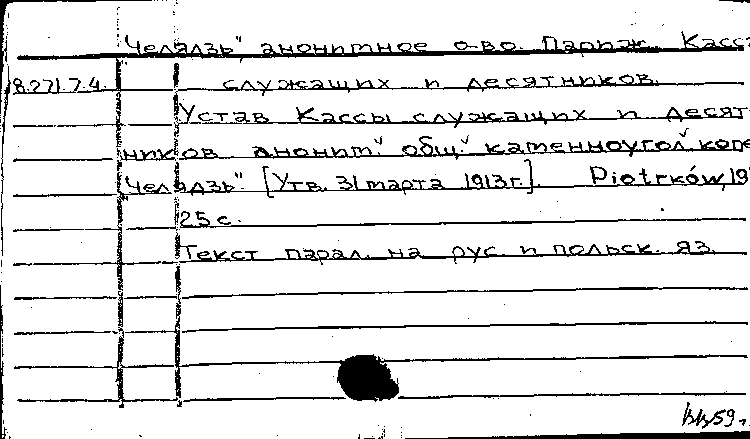 "Челядзь", анонимное о-во. Париж. Касса
18.271.7.4. служащих и десятников.
Устав Кассы служащих и десят-
ников анонит. общ. каменноугол. копе
"Челядзь". [Утв. 31 марта 1913 г.]. Piotrków, 19
25 с.
Текст парал. на рус. и польск. яз.